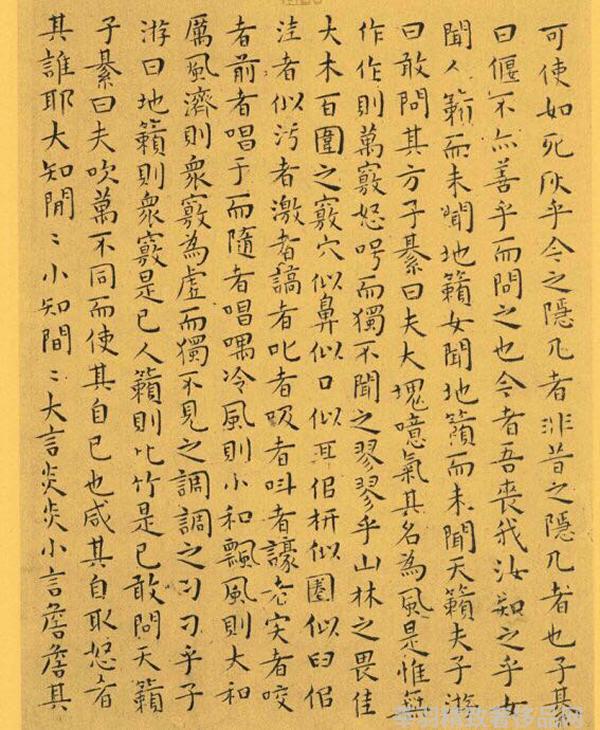 可使如死灰乎今之隱几者非昔之隱几者也子綦
曰偃不亦善乎而問之也今者吾喪我汝知之乎女
聞人籟而未聞地籟女聞地籟而未聞天籟夫子游
曰敢問其方子綦曰夫大塊噫氣其名為風是惟無
作作則萬竅怒呺而獨不聞之翏翏乎山林之畏佳
大木百圍之竅穴似鼻似口似耳佀枅似圈似臼佀
洼者似污者激者謞者叱者吸者叫者譹者宎者咬
者前者唱于而隨者唱喁冷風則小和飄風則大和
厲風濟則衆竅為虛而獨不見之調調之刁刁乎子
游曰地籟則衆竅是已人籟則比竹是已敢問天籟
子綦曰夫吹萬不同而使其自已也咸其自取怒者
其誰耶大知閑〻小知間〻大言炎炎小言詹詹其